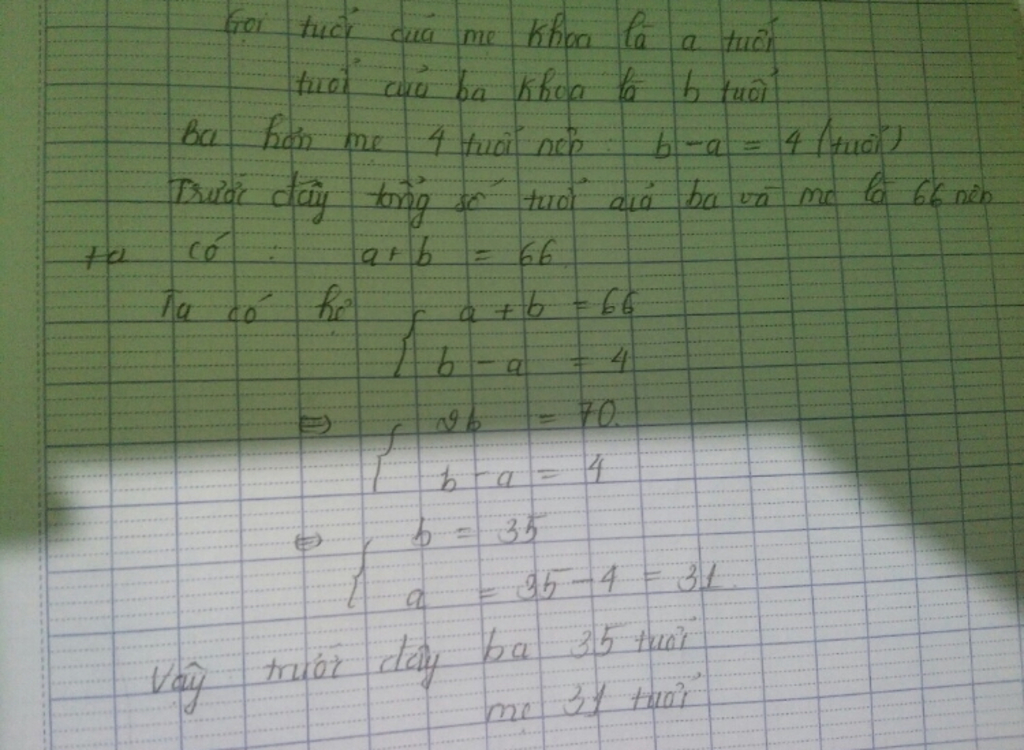 Gọi tuổi của mẹ Khoa là a tuổi
tuổi của ba Khoa là b tuổi
Ba hơn mẹ 4 tuổi nên : b - a = 4 (tuổi)
Trước đây tổng số tuổi của ba và mẹ là 66 nên
ta có : a + b = 66
Ta có hệ { a + b = 66
b - a = 4
⇔ { 2b = 70.
b - a = 4
⇔ { b = 35
a = 35 - 4 = 31.
Vậy trước đây ba 35 tuổi
mẹ 31 tuổi